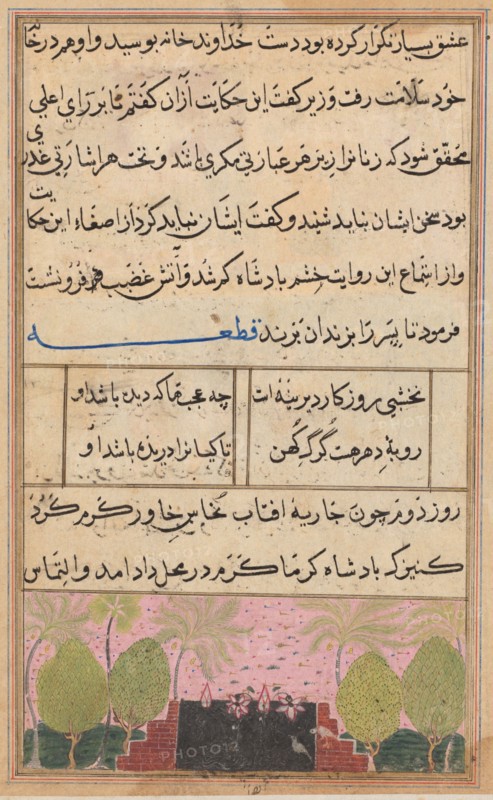 عشق بسیار تکرار کرده بود دست خداوند خانه بوسید و او هم در خا
خود سلامت رفت وزیر گفت این حکایت ازان گفتم تا بر رای اعلی
محقق شود که زنانرا زیر هر عبارتی مکری باشد و تحت هر اشارتی غدری
بود سخن ایشان نباید شنید و گفت ایشان نباید کرد از اصغاء این حکایت
و از استماع این روایت خشم پادشاه کم شد و آتش غضب هم فرونشست
فرمود تا پسر را بزندان بزند قطعه
نخشبی روزگار دیرینه است چه عجبها که دیده باشد او
روبهٔ دهر هست گرگ کهن تا کیانرا دریده باشد او
روز دوم چون جاریهٔ افتاب نخاس خاور کرم کرد
کنیزک پادشاه کرما کرم در محل داد امد و التماس
PHOTO12